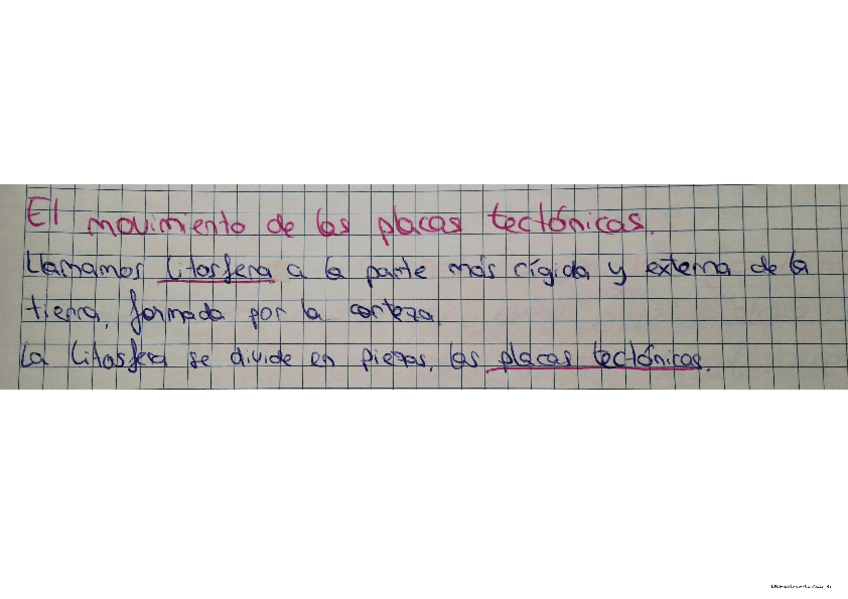 El movimiento de las placas tectónicas.
Llamamos Litosfera a la parte más rígida y externa de la
tierra, formada por la corteza.
La Litosfera se divide en piezas, las placas tectónicas.